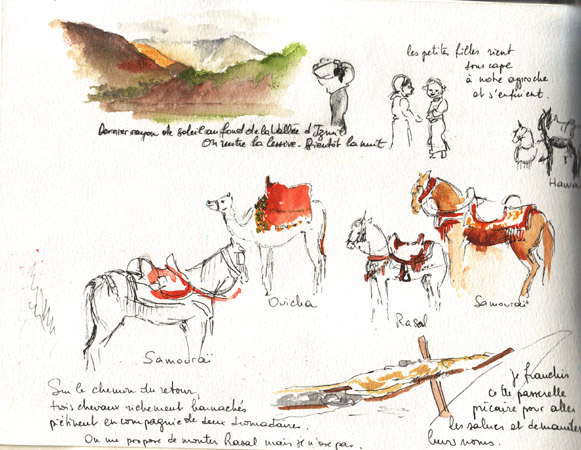 les petites filles rient
sous cape
à notre approche
et s'enfuient.
Dernier rayon de soleil au fond de la Vallée d'
On rentre la lessive - Bientôt la nuit
Hawa
Ouicha
Samouraï
Rasal
Samouraï
Sur le chemin du retour,
trois chevaux richement harnachés
piétinent en compagnie de deux dromadaires.
On me propose de monter Rasal mais je n'ose pas.
Je franchis
cette passerelle
précaire pour aller
les saluer et demander
leurs noms.